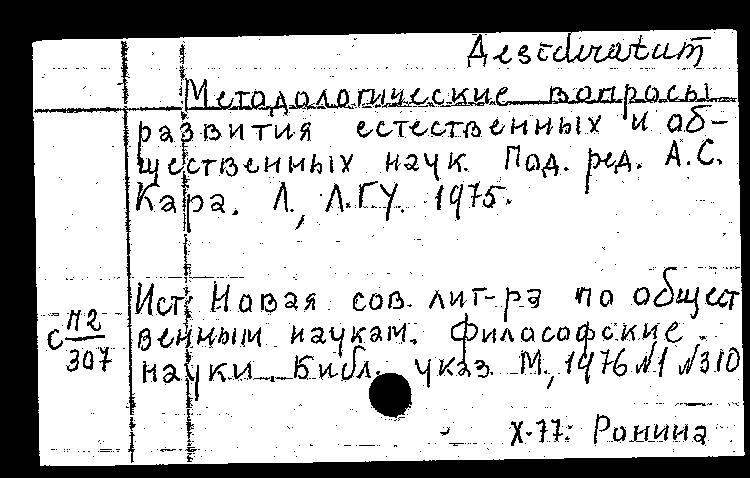 Desideratum
Методологические вопросы
развития естественных и об-
щественных наук. Под. ред. А.С.
Кара. Л., Л.ГУ. 1975.
Ист: Новая сов. лит-ра по общест
венным наукам. Философские
науки. Библ. указ. М., 1976 №1 №310
С П2
307
X-77: Ронина